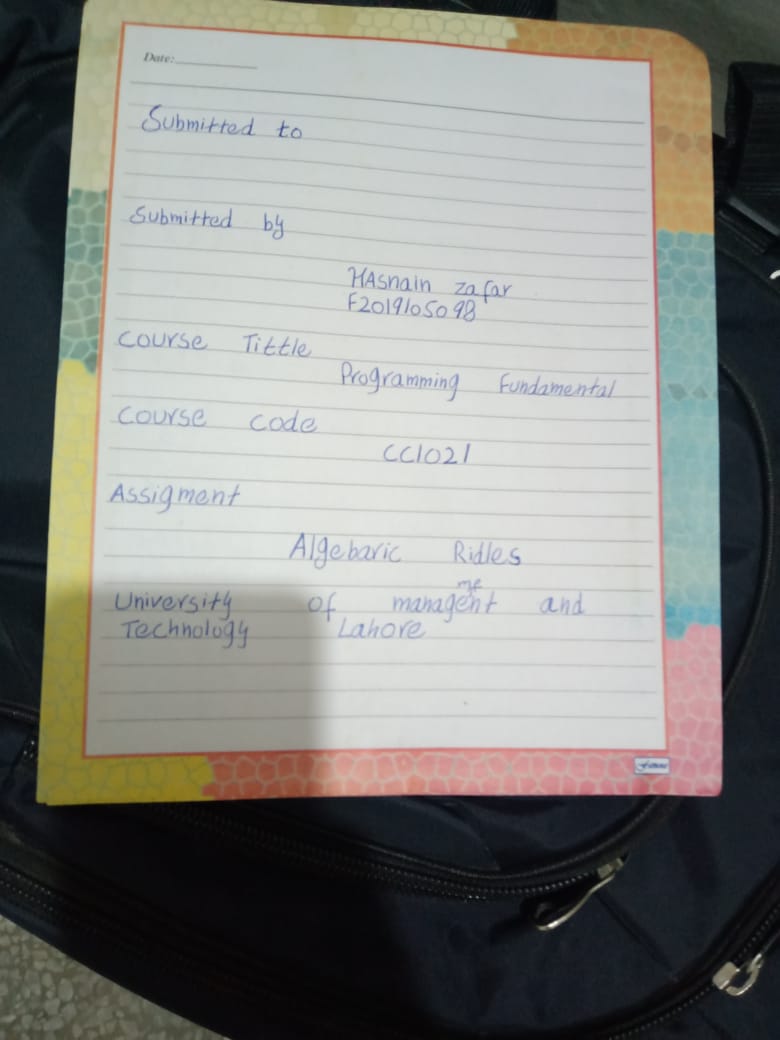 Date:
Submitted to
Submitted by
HAsnain zafar
F2019105098
Course Tittle
Programming Fundamental
Course code
CC1021
Assigment
Algebaric Ridles
me
University of managent and
Technology Lahore